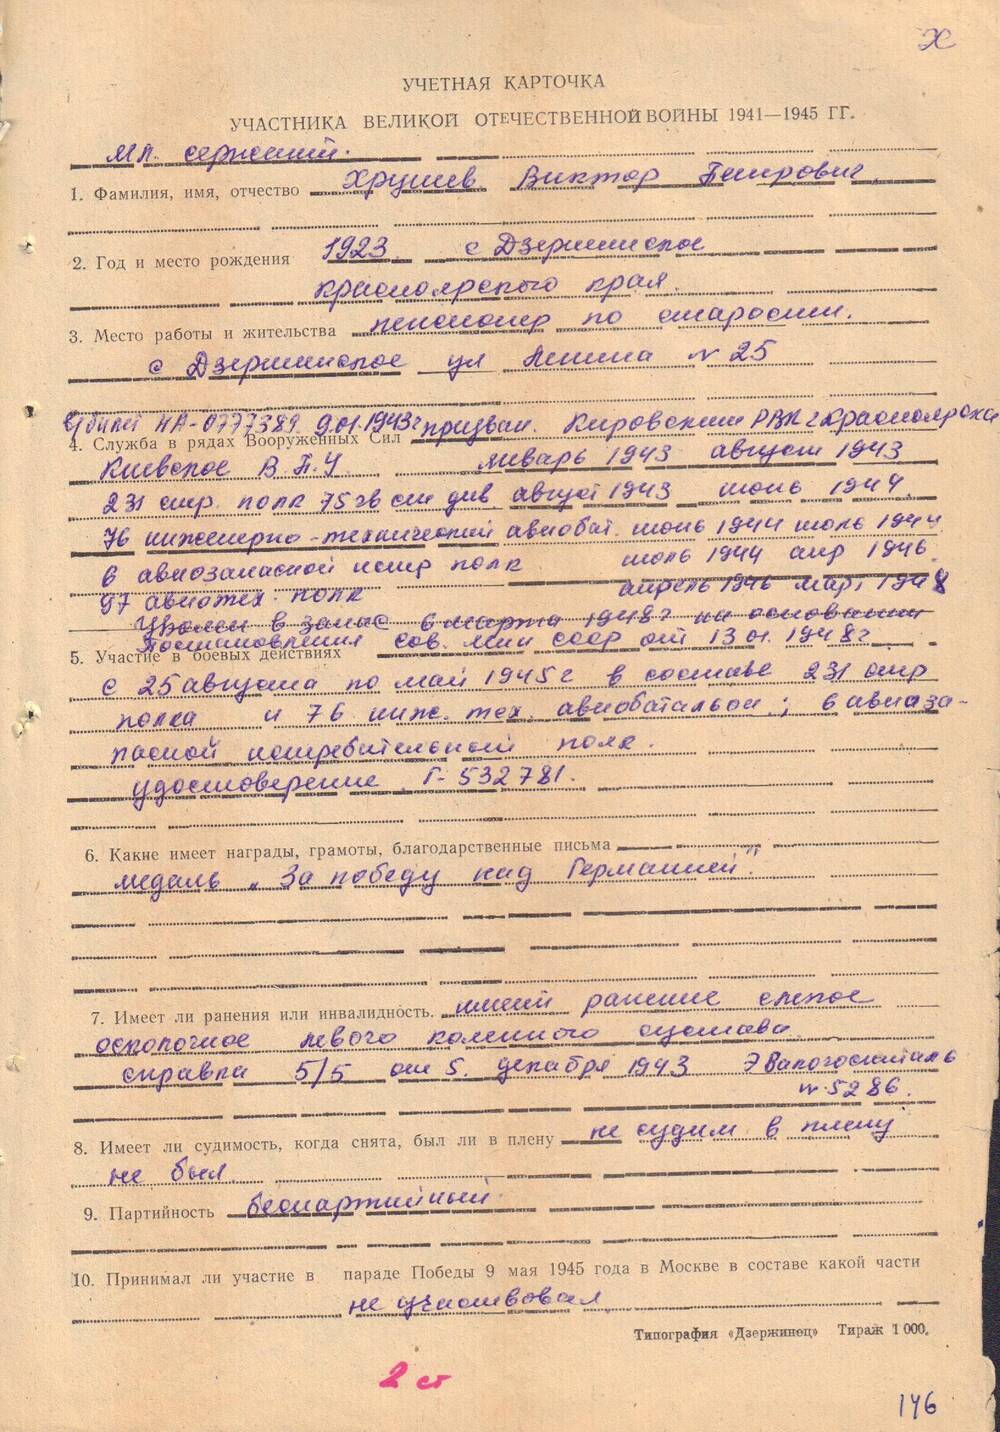 Х
УЧЕТНАЯ КАРТОЧКА
УЧАСТНИКА ВЕЛИКОЙ ОТЕЧЕСТВЕННОЙ ВОЙНЫ 1941—1945 ГГ.
мл. сержант.
1. Фамилия, имя, отчество Хрущев Виктор Петрович
2. Год и место рождения 1923 с Дзержинское
красноярского края.
3. Место работы и жительства пенсионер по старости.
с Дзержинское ул Ленина № 25
в/билет НА-0777389 9.01.1943г призван. Кировским РВК г Красноярска
4. Служба в рядах Вооруженных Сил
Киевское В.П.У. январь 1943 август 1943
231 стр. полк 75 гв ст див. август 1943 июнь 1944.
76 инженерно-технический авиобат. июнь 1944 июль 1944
6 авиозапасной истр полк июль 1944 апр 1946.
97 авиотех. полк апрель 1946 март 1948
Уволен в запас 6 марта 1948г на основании
Постановления сов. мин ссср от 13 01. 1948г
5. Участие в боевых действиях
с 25 августа по май 1945г в составе 231 стр
полка и 76 инж. тех. авиобатальон; 6 авиаза-
пасной истребительный полк.
удостоверение Г-532781.
6. Какие имеет награды, грамоты, благодарственные письма
медаль „За победу над Германией"
7. Имеет ли ранения или инвалидность. имеет ранение слепое
осколочное левого коленного сустава
справка 5/5 от 5. декабря 1943 Эвакогоспиталь
№ 5286.
8. Имеет ли судимость, когда снята, был ли в плену не судим в плену
не был.
9. Партийность беспартийный
10. Принимал ли участие в параде Победы 9 мая 1945 года в Москве в составе какой части
не участвовал
Типография «Дзержинец» Тираж 1 000.
2 ст
146